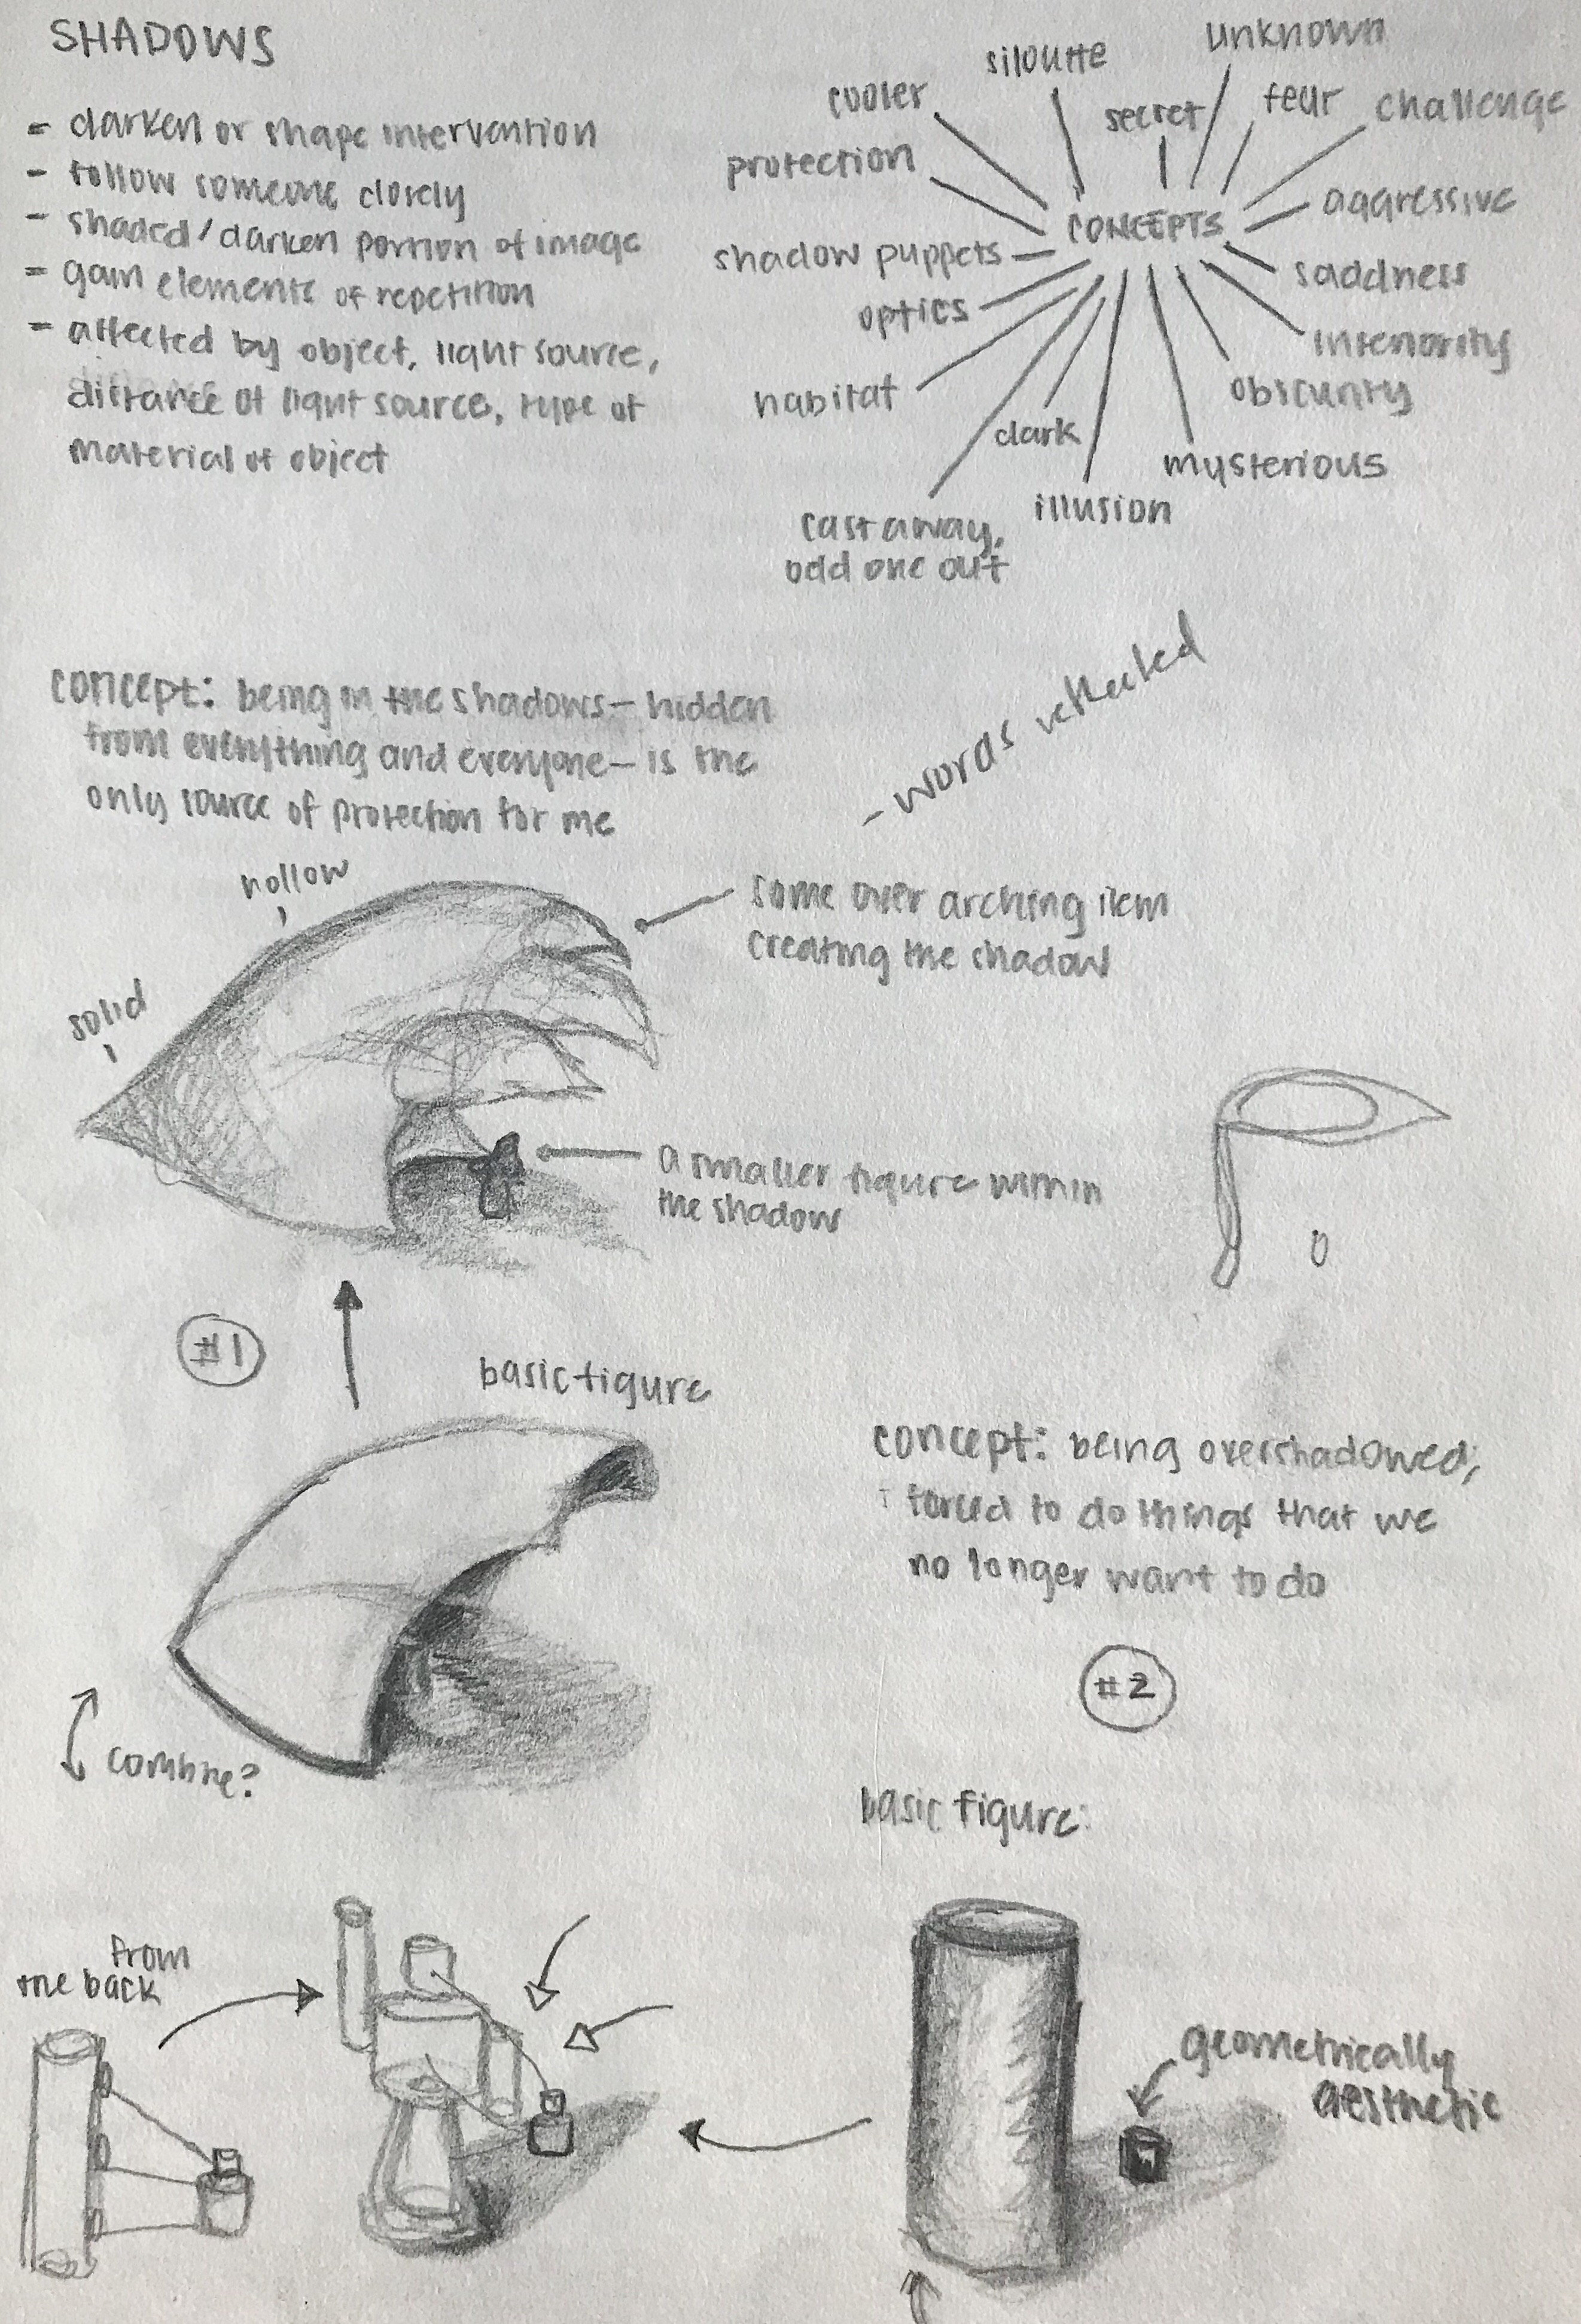 SHADOWS
- darken or shape intervention
- follow someone closely
- shaded/darken portion of image
- gain elements of repetition
- affected by object, light source,
distance of light source, type of
material of object
unknown
siloutte
cooler
secret
fear
challenge
protection
CONCEPTS
aggressive
shadow puppets
saddness
optics
interiority
habitat
obscurity
dark
mysterious
castaway,
odd one out
illusion
concept: being in the shadows— hidden
from everything and everyone— is the
only source of protection for me
- words reflected
hollow
solid
some over arching item
creating the shadow
a smaller figure within
the shadow
#1
basic figure
concept: being overshadowed;
forced to do things that we
no longer want to do
#2
combine?
basic figure:
from
the back
geometrically
aesthetic